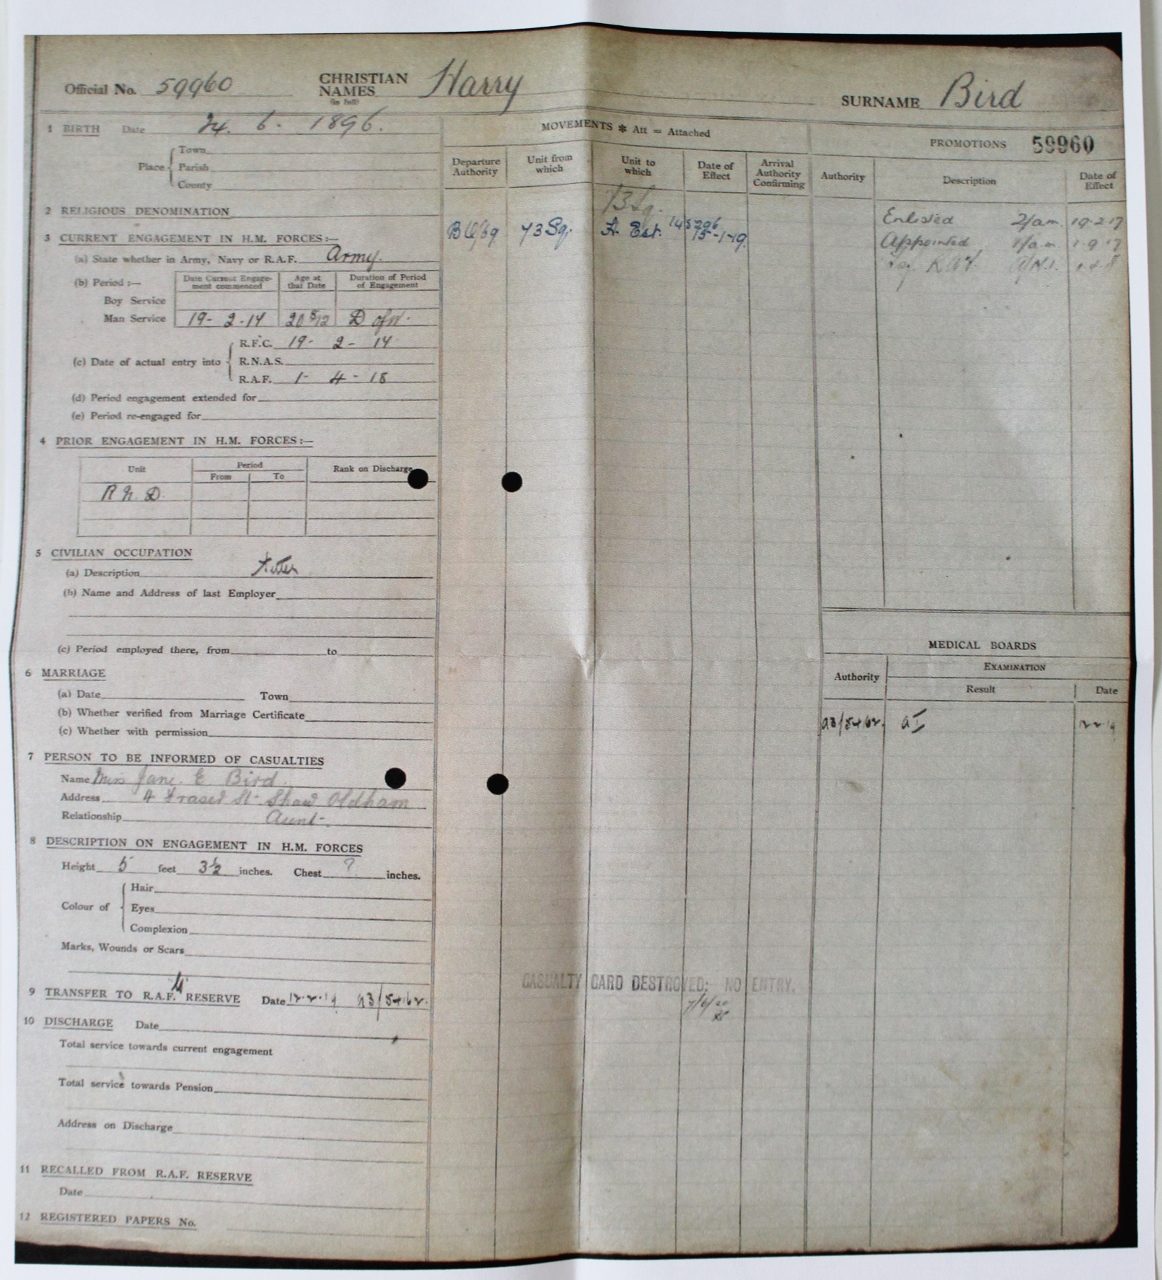 Official No. 59960 CHRISTIAN NAMES (in full) Harry SURNAME Bird
1 BIRTH Date 24. 6. 1896.
Place Town
Parish
County
2 RELIGIOUS DENOMINATION
3 CURRENT ENGAGEMENT IN H.M. FORCES:—
(a) State whether in Army, Navy or R.A.F. Army.
(b) Period :— Date Current Engagement commenced Age at that Date Duration of Period of Engagement
Boy Service
Man Service 19- 2-17 20 8/12 D of W.
(c) Date of actual entry into R.F.C. 19- 2- 17
R.N.A.S.
R.A.F. 1- 4- 18
(d) Period engagement extended for
(e) Period re-engaged for
4 PRIOR ENGAGEMENT IN H.M. FORCES:—
Unit Period From To Rank on Discharge
R N D
5 CIVILIAN OCCUPATION
(a) Description Fitter
(b) Name and Address of last Employer
(c) Period employed there, from to
6 MARRIAGE
(a) Date Town
(b) Whether verified from Marriage Certificate
(c) Whether with permission
7 PERSON TO BE INFORMED OF CASUALTIES
Name Miss Jane E Bird
Address 4 Fraser St- Shaw Oldham
Relationship Aunt-
8 DESCRIPTION ON ENGAGEMENT IN H.M. FORCES
Height 5 feet 3½ inches. Chest ? inches.
Colour of Hair
Eyes
Complexion
Marks, Wounds or Scars
9 TRANSFER TO R.A.F. RESERVE Date
10 DISCHARGE Date
Total service towards current engagement
Total service towards Pension
Address on Discharge
11 RECALLED FROM R.A.F. RESERVE
Date
12 REGISTERED PAPERS No.
MOVEMENTS * Att = Attached
Departure Authority Unit from which Unit to which Date of Effect Arrival Authority Confirming
73 Sq.
73 Sq. 15-1-19.
CASUALTY CARD DESTROYED; NO ENTRY.
7/6/20
PROMOTIONS 59960
Authority Description Date of Effect
Enlisted 2/am. 19-2-17
Appointed 1/am. 1-9-17
MEDICAL BOARDS
Authority EXAMINATION
Result Date